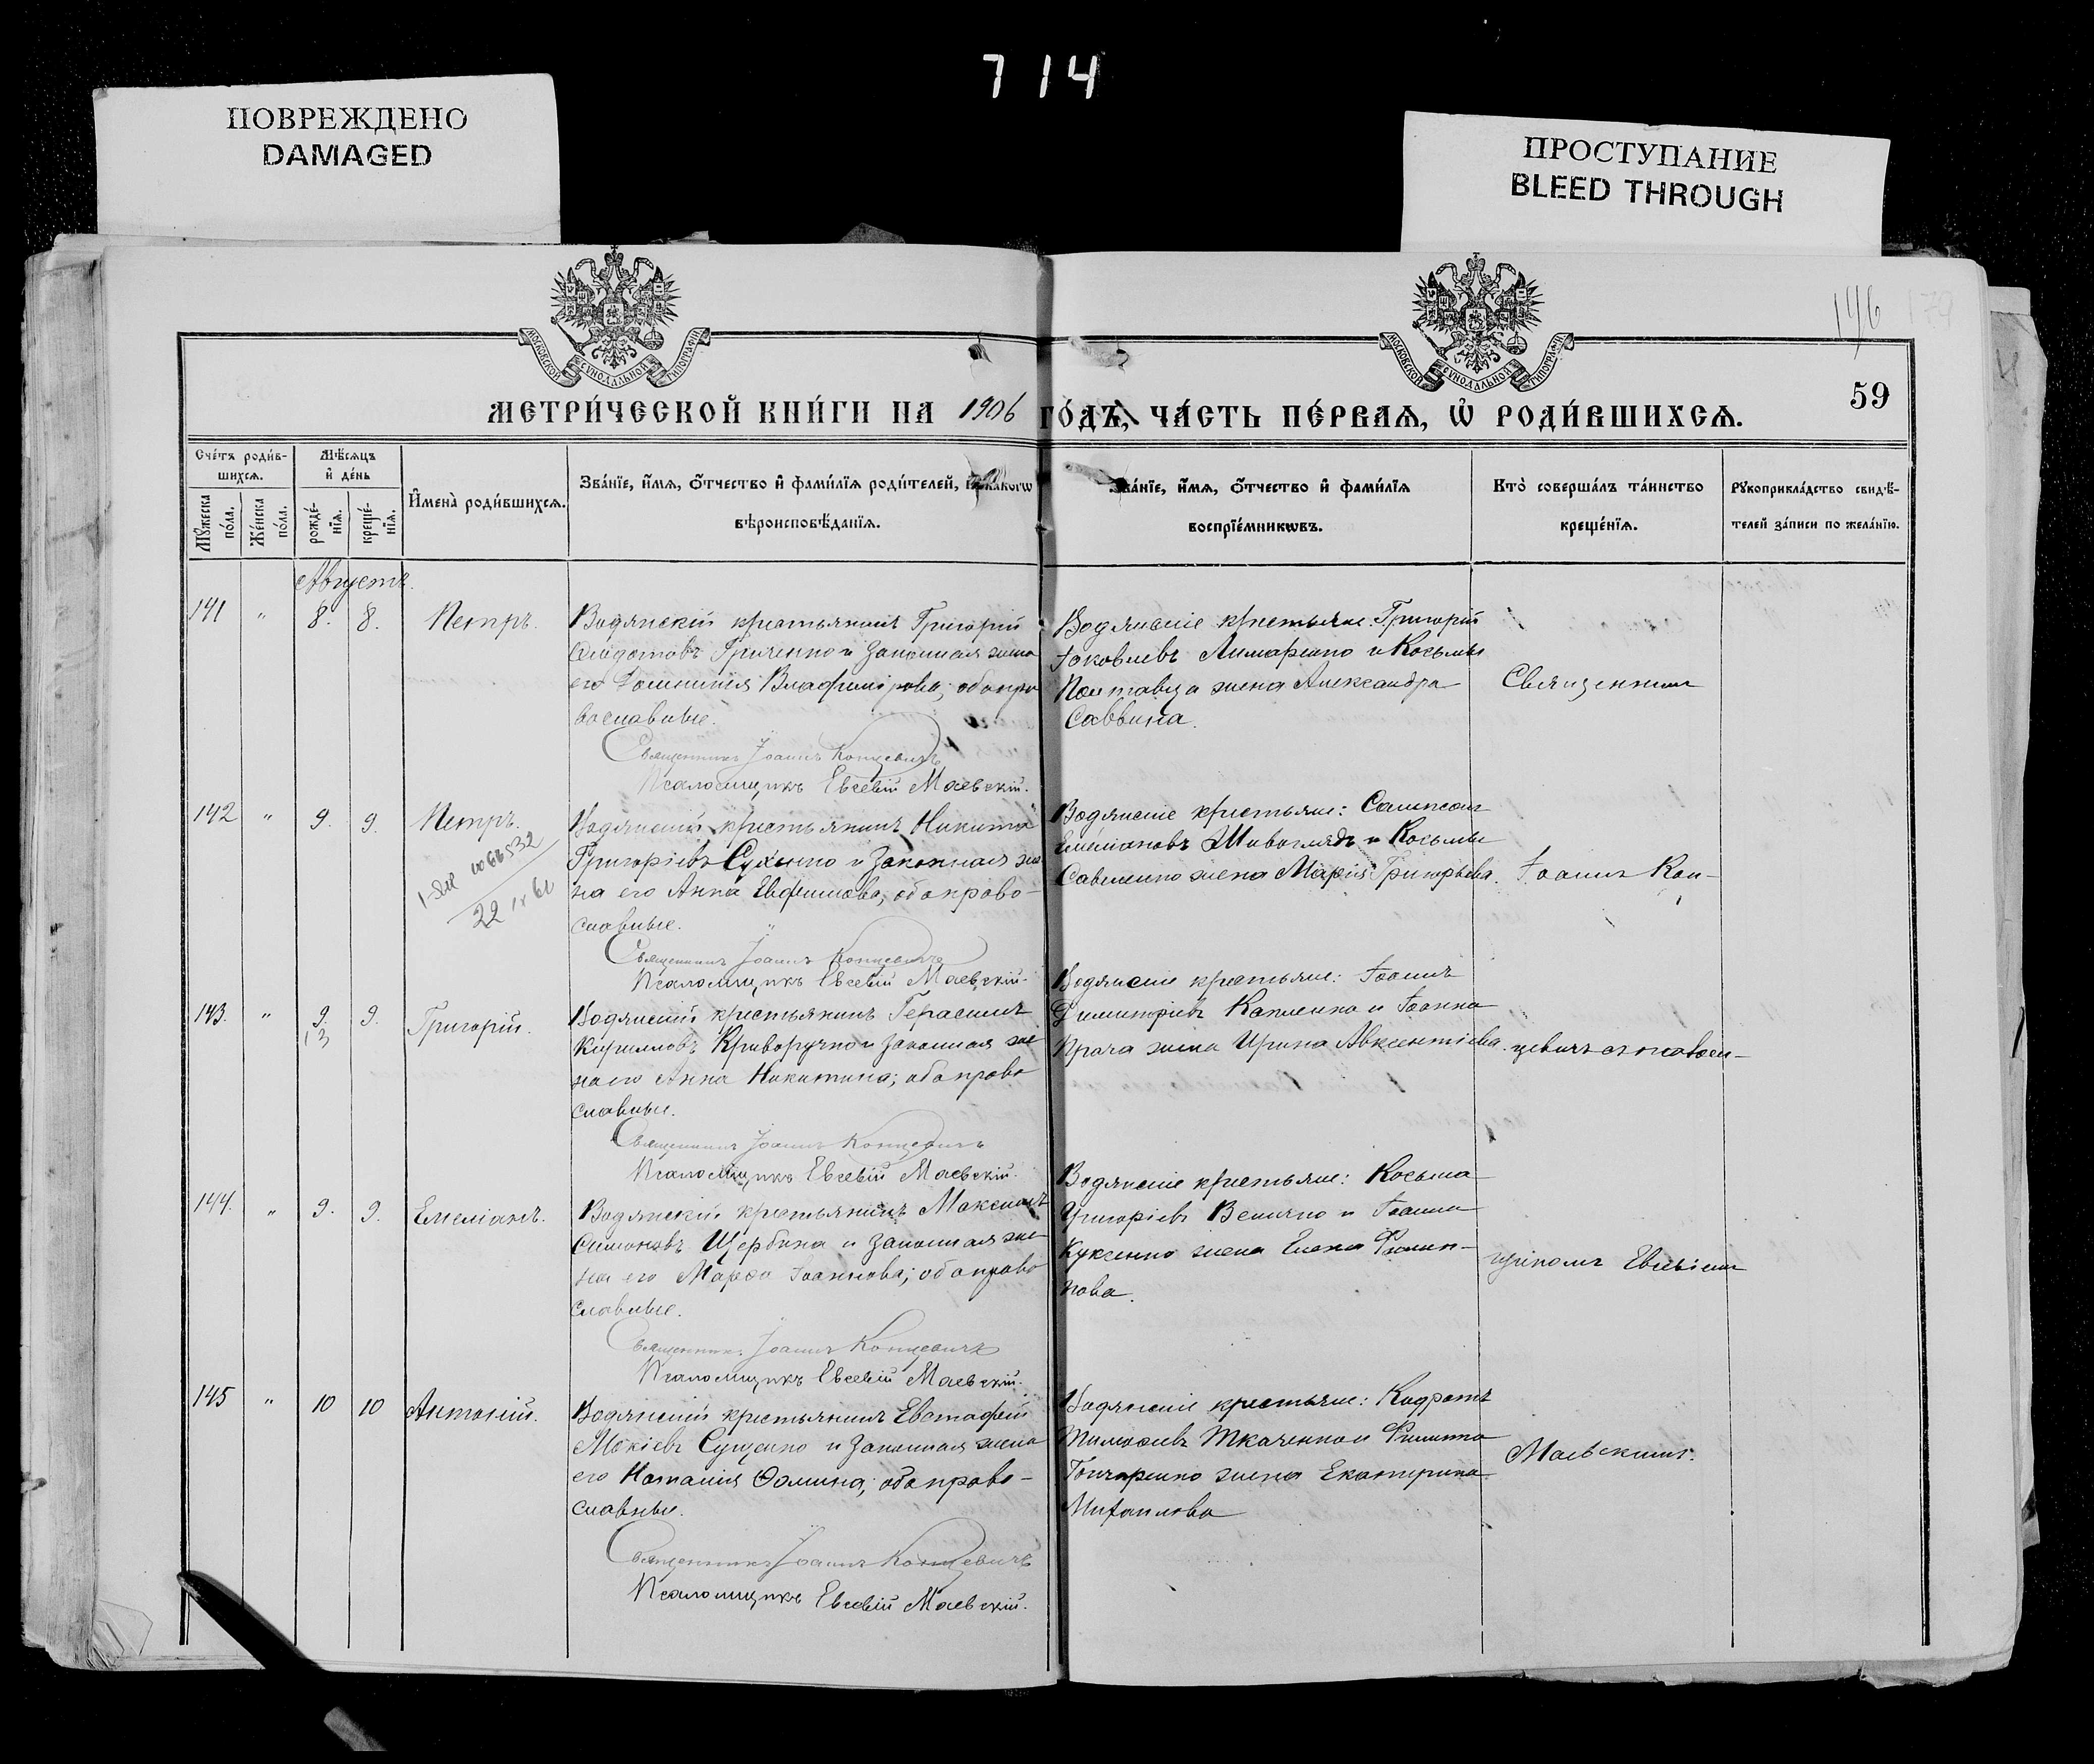 714
ПОВРЕЖДЕНО
DAMAGED
ПРОСТУПАНИЕ
BLEED THROUGH
МОСКОВСКОЙ СУНОДАЛЬНОЙ ТИПОГРАФІИ
МОСКОВСКОЙ СУНОДАЛЬНОЙ ТИПОГРАФІИ
146
59
МЕТРИ́ЧЕСКОЙ КНИ́ГИ НА 1906 ГО́ДЪ, ЧА́СТЬ ПЕ́РВАѦ, Ѡ҆ РОДИ́ВШИХСѦ.
Сче́тъ роди́в-
шихсѧ.
Мꙋ́жеска по́ла.
Же́нска по́ла.
Мѣ́сѧцъ
и҆ де́нь
рожде́-
нїѧ.
креще́-
нїѧ.
И҆мена̀ роди́вшихсѧ.
Зва́нїе, и҆́мѧ, ѻ҆́тчество и҆ фами́лїѧ роди́телей, и҆ како́гѡ
вѣроисповѣ́данїѧ.
Зва́нїе, и҆́мѧ, ѻ҆́тчество и҆ фами́лїѧ
воспрїе́мникѡвъ.
Кто̀ соверша́лъ та́инство
креще́нїѧ.
Рꙋкоприкла́дство свидѣ́-
телей за́писи по жела́нїю.
Августъ.
141 " 8. 8. Петръ.
Водянскій крестьянинъ Григорій
Ѳеодотовъ Гриченко и законная жена
его Домникія Владимірова; оба пра
вославные.
Священникъ Іоаннъ Концевичъ
Псаломщикъ Евсевій Маевскій.
Водянскіе крестьяне: Григорій
Іаковлевъ Лимаренко и Косьмы
Полтавца жена Александра
Саввина.
Священникъ
142 " 9. 9. Петръ.
22 IX 61
Водянскій крестьянинъ Никита
Григоріевъ Сухенко и законная же
на его Анна Евфимова; оба право-
славные.
Священникъ Іоаннъ Концевичъ
Псаломщикъ Евсевій Маевскій.
Водянскіе крестьяне: Сампсонъ
Емеліановъ Шивоглядъ и Косьмы
Савченко жена Марія Григорьева.
Іоаннъ Кон-
143. " 9. 9. Григорій.
Водянскій крестьянинъ Герасимъ
Кирилловъ Криворучко и законная же
на его Анна Никитина; оба право
славные.
Священникъ Іоаннъ Концевичъ
Псаломщикъ Евсевій Маевскій.
Водянскіе крестьяне: Іоаннъ
Димитріевъ Капленко и Іоанна
Прача жена Ирина Авксентіева.
цевичъ съ псалом-
144. " 9. 9. Емеліанъ.
Водянскій крестьянинъ Максимъ
Симоновъ Щербина и законная же
на его Марѳа Іоаннова; оба право
славные.
Священникъ Іоаннъ Концевичъ
Псаломщикъ Евсевій Маевскій.
Водянскіе крестьяне: Косьма
Григоріевъ Величко и Іоанна
Куксенко жена Елена Филип-
пова.
щикомъ Евсевіемъ
145 " 10 10 Антоній.
Водянскій крестьянинъ Евстафій
Мокіевъ Сущенко и законная жена
его Наталія Ѳомина; оба право-
славные.
Священникъ Іоаннъ Концевичъ
Псаломщикъ Евсевій Маевскій.
Водянскіе крестьяне: Кодратъ
Тимоѳеевъ Ткаченко и Филиппа
Гончаренко жена Екатерина
Михаилова
Маевскимъ.